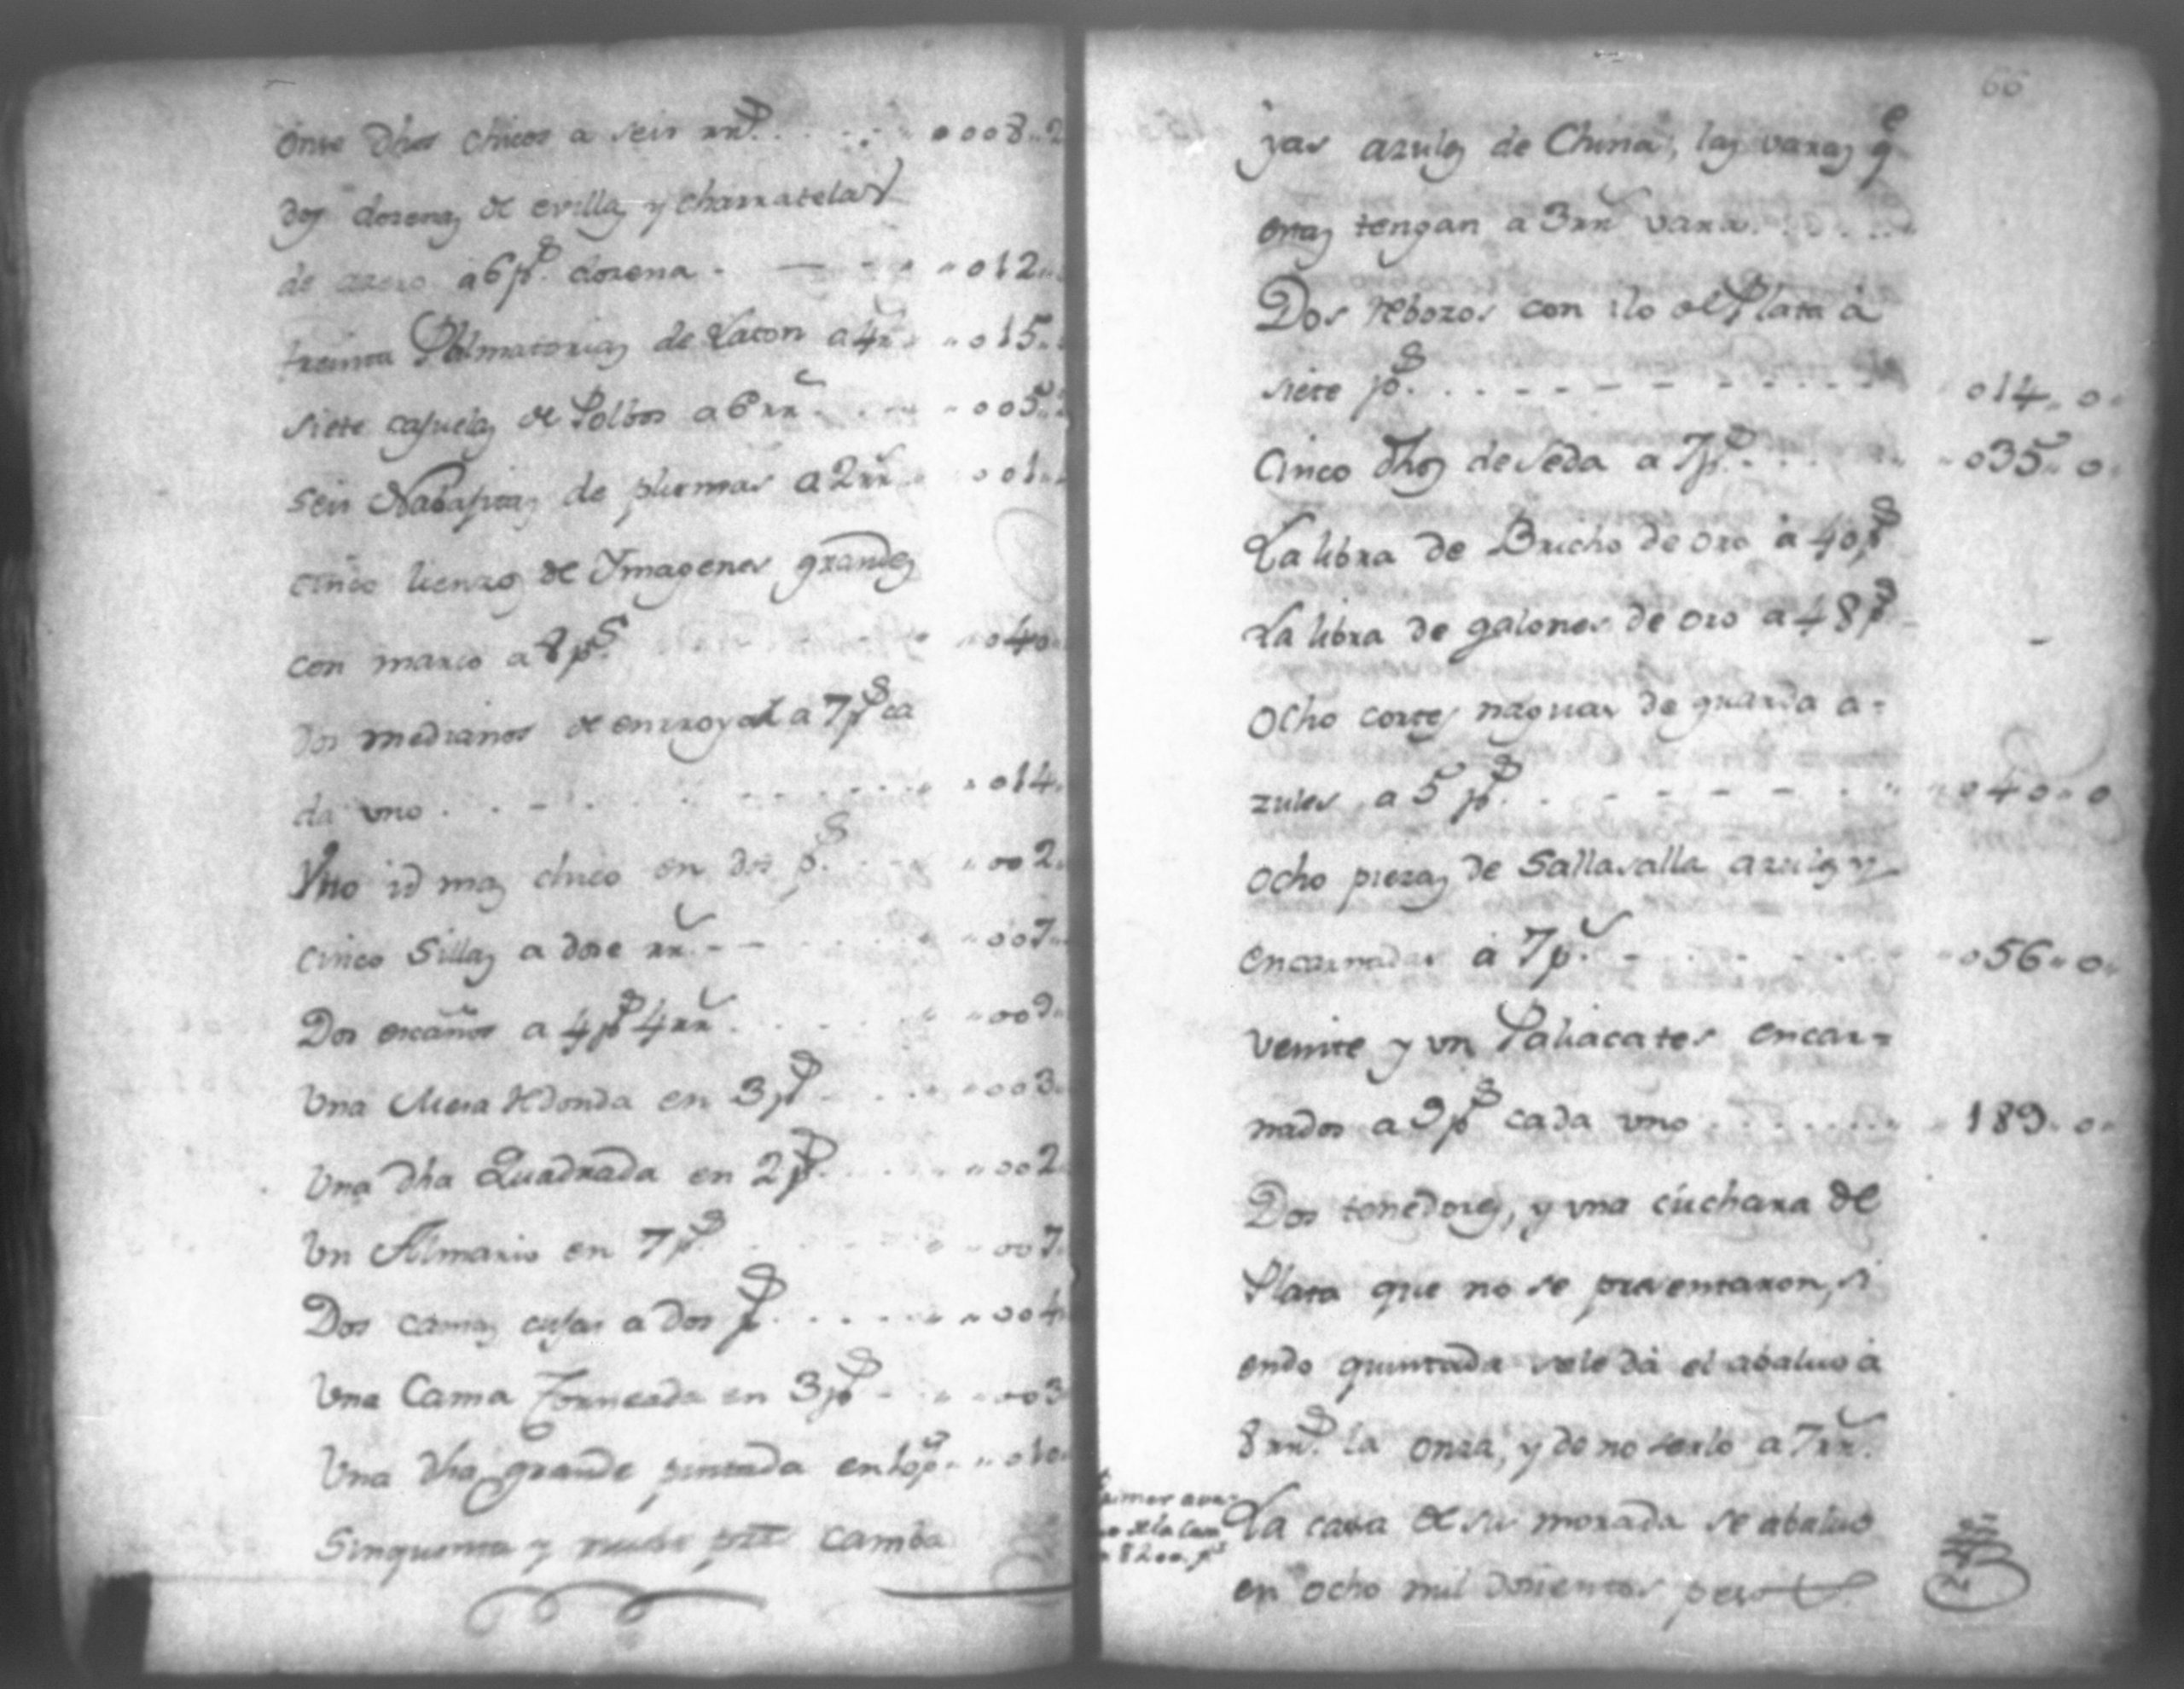 Onse dhos chicos a seis rr.s . . . . . 0008..2
dos dosenas de evillas y charratelas
de azero a 6 p.s dozena . — - - .. 012..
treinta Palmatorias de Laton a 4 r.. 015..
siete casuelas de Polbos a 6 rr.s . . . .. 005..
seis Nabajitas de plumas a 2 rr.s . . 001..
cinco lienzos de Ymagenes grandes
con marco a 8 p.s . . . .. 040..
dos medianos de enrroyad a 7 p.s ca
da uno . . - . . . . . . .. 014..
Vno id mas chico en dos p.s . . . .. 002..
cinco Sillas a dose rr.s - - . . . .. 007..
Dos escaños a 4 p.s 4 rr.s . . . . .. 009..
Una Mesa redonda en 3 p.s . . . .. 003..
Una dha Quadrada en 2 p.s . . . .. 002
Un Almario en 7 p.s . . . .. 007
Dos camas cujas a dos p.s . . . . . .. 004
Una Cama Torneada en 3 p.s - . .. 003
Una dha grande pintada en 10 p.s . .. 010
Sinquenta y p.zas Camba
66
yas azules de China, las varas q.e
estas tengan a 3 rr.s vara . . . . .
Dos rebozos con ilo de Plata à
siete p.s . . . - - - - - - . . . . 014.. 0..
Cinco dhos de seda a 7 p.s . . . . . .. 035.. 0..
La libra de Bricho de oro à 40 p.s
La libra de galones de oro a 48 p.s -
Ocho cortes naguas de guarda a-
zules a 5 p.s . . - - - - - . .. 040.. 0
Ocho piezas de Sallasalla azules y
encarnadas à 7 p.s - . . . . . . .. 056.. 0..
veinte y un Paliacates encar-
nados a 9 p.s cada uno . . . . . . . .. 189.. 0..
Dos tenedores, y una cuchara de
Plata que no se presentaron, si
endo quintada se le dà el abaluo à
8 rr.s la onza, y de no serlo a 7 rr.s
La casa de su morada se abaluò
en ocho mil dosientos pesos
Primer ava-
luo de la Casa
en 8200 p.s